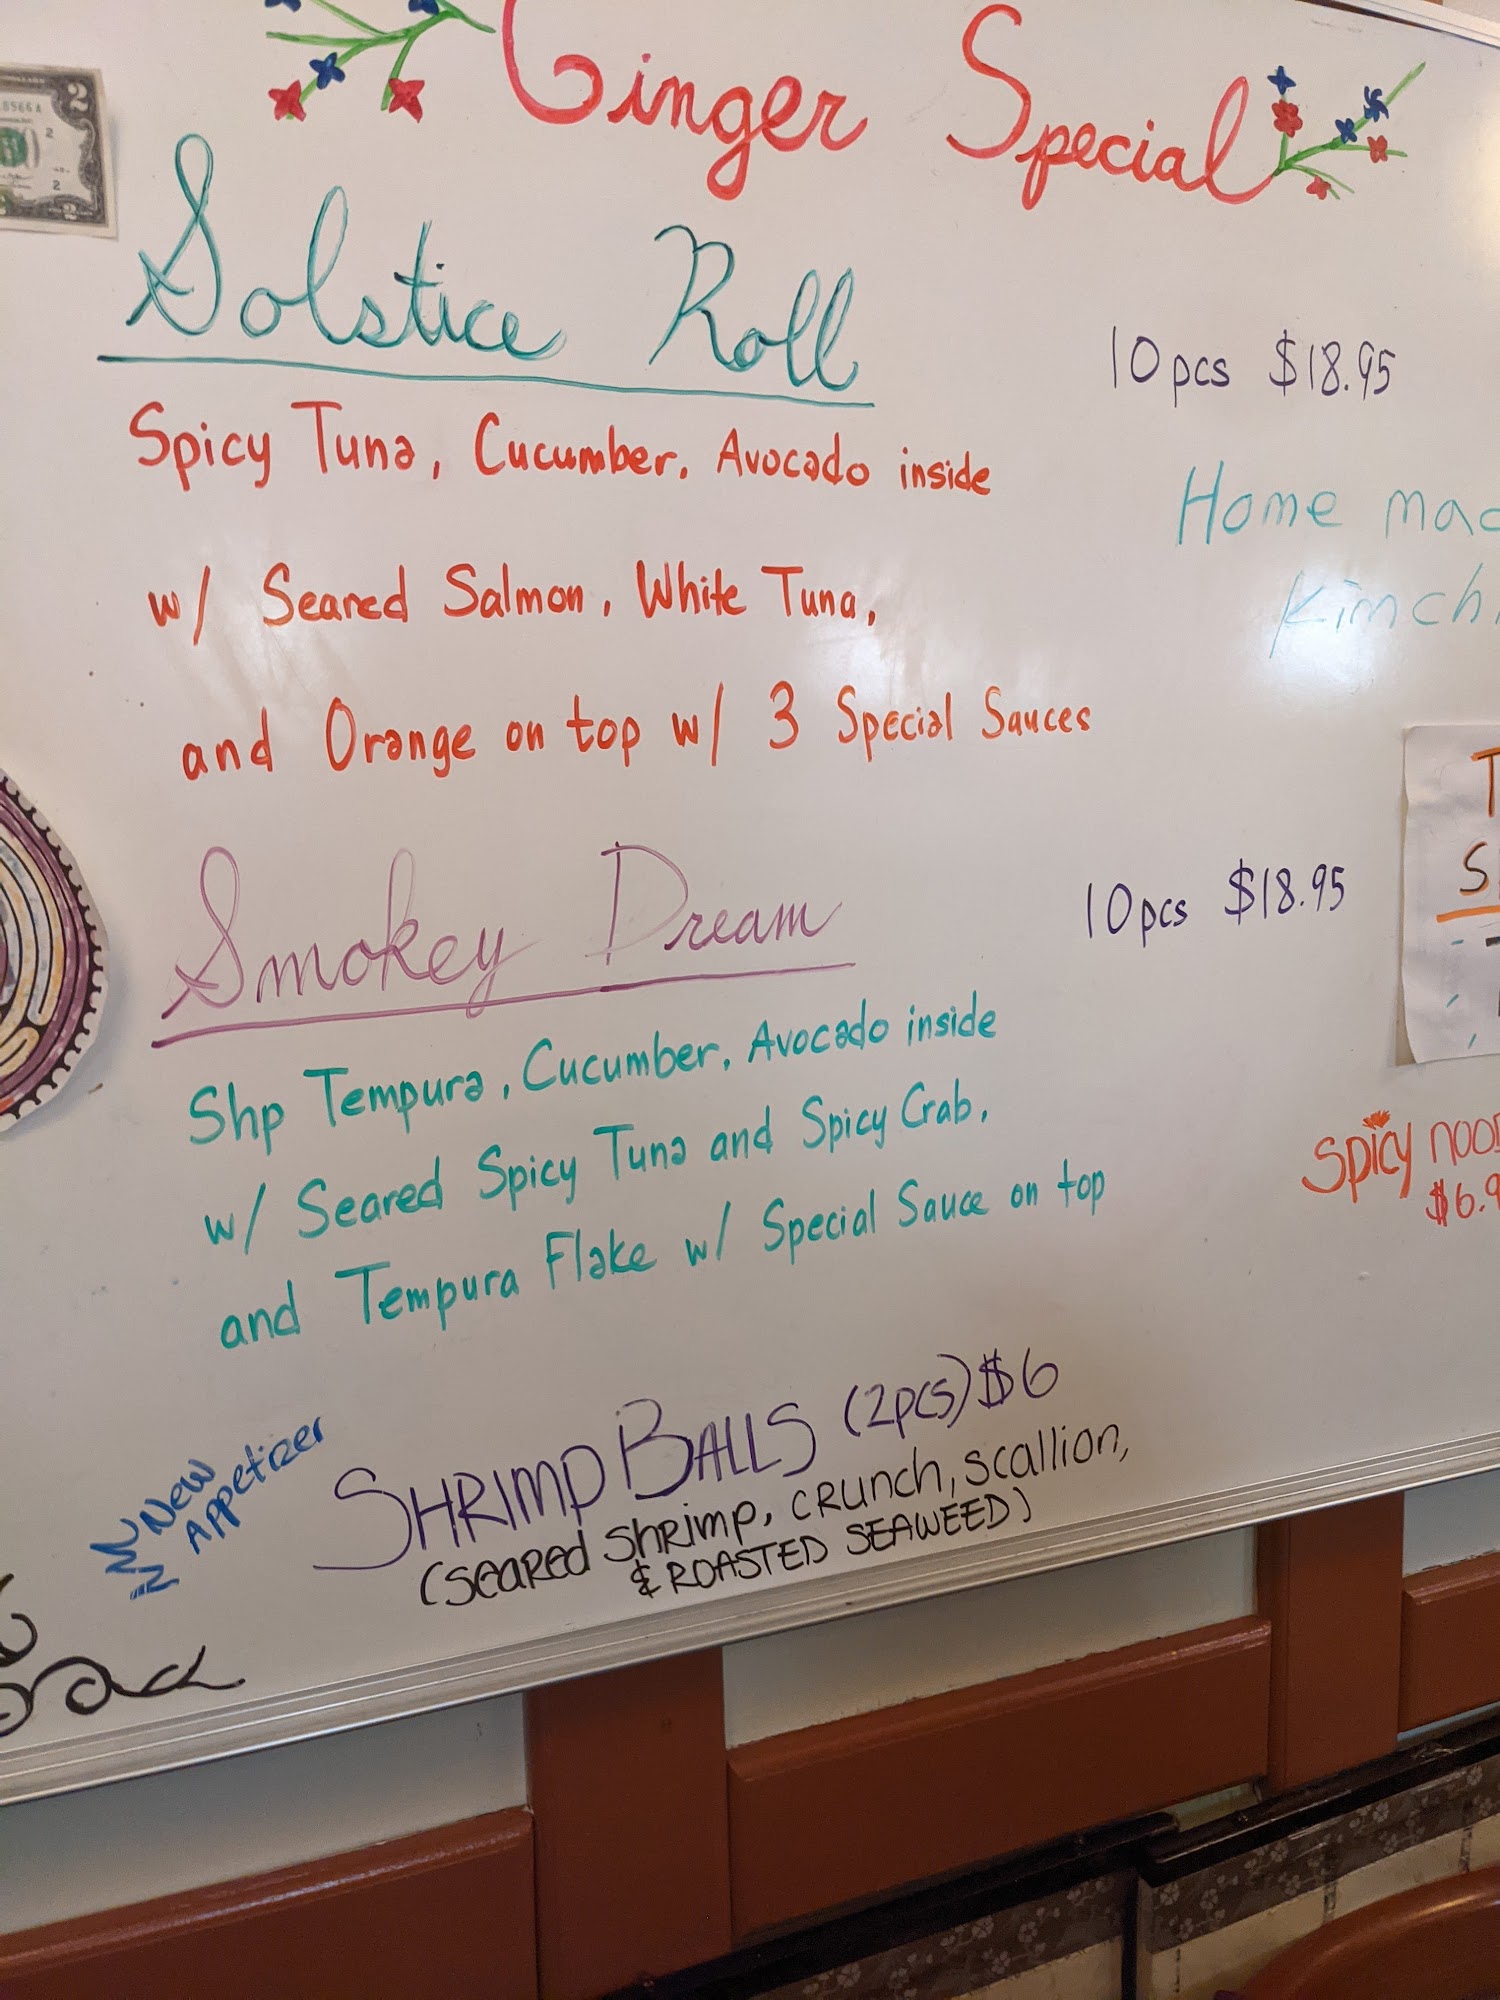 Ginger Special
Solstice Roll
10 pcs $18.95
Spicy Tuna, Cucumber, Avocado inside
w/ Seared Salmon, White Tuna,
and Orange on top w/ 3 Special Sauces
Home
Smokey Dream
10 pcs $18.95
Shp Tempura, Cucumber, Avocado inside
w/ Seared Spicy Tuna and Spicy Crab,
and Tempura Flake w/ Special Sauce on top
Spicy
New
Appetizer
SHRIMP BALLS (2pcs) $6
(SEARED SHRIMP, CRUNCH, SCALLION,
& ROASTED SEAWEED)
2
2
2
2